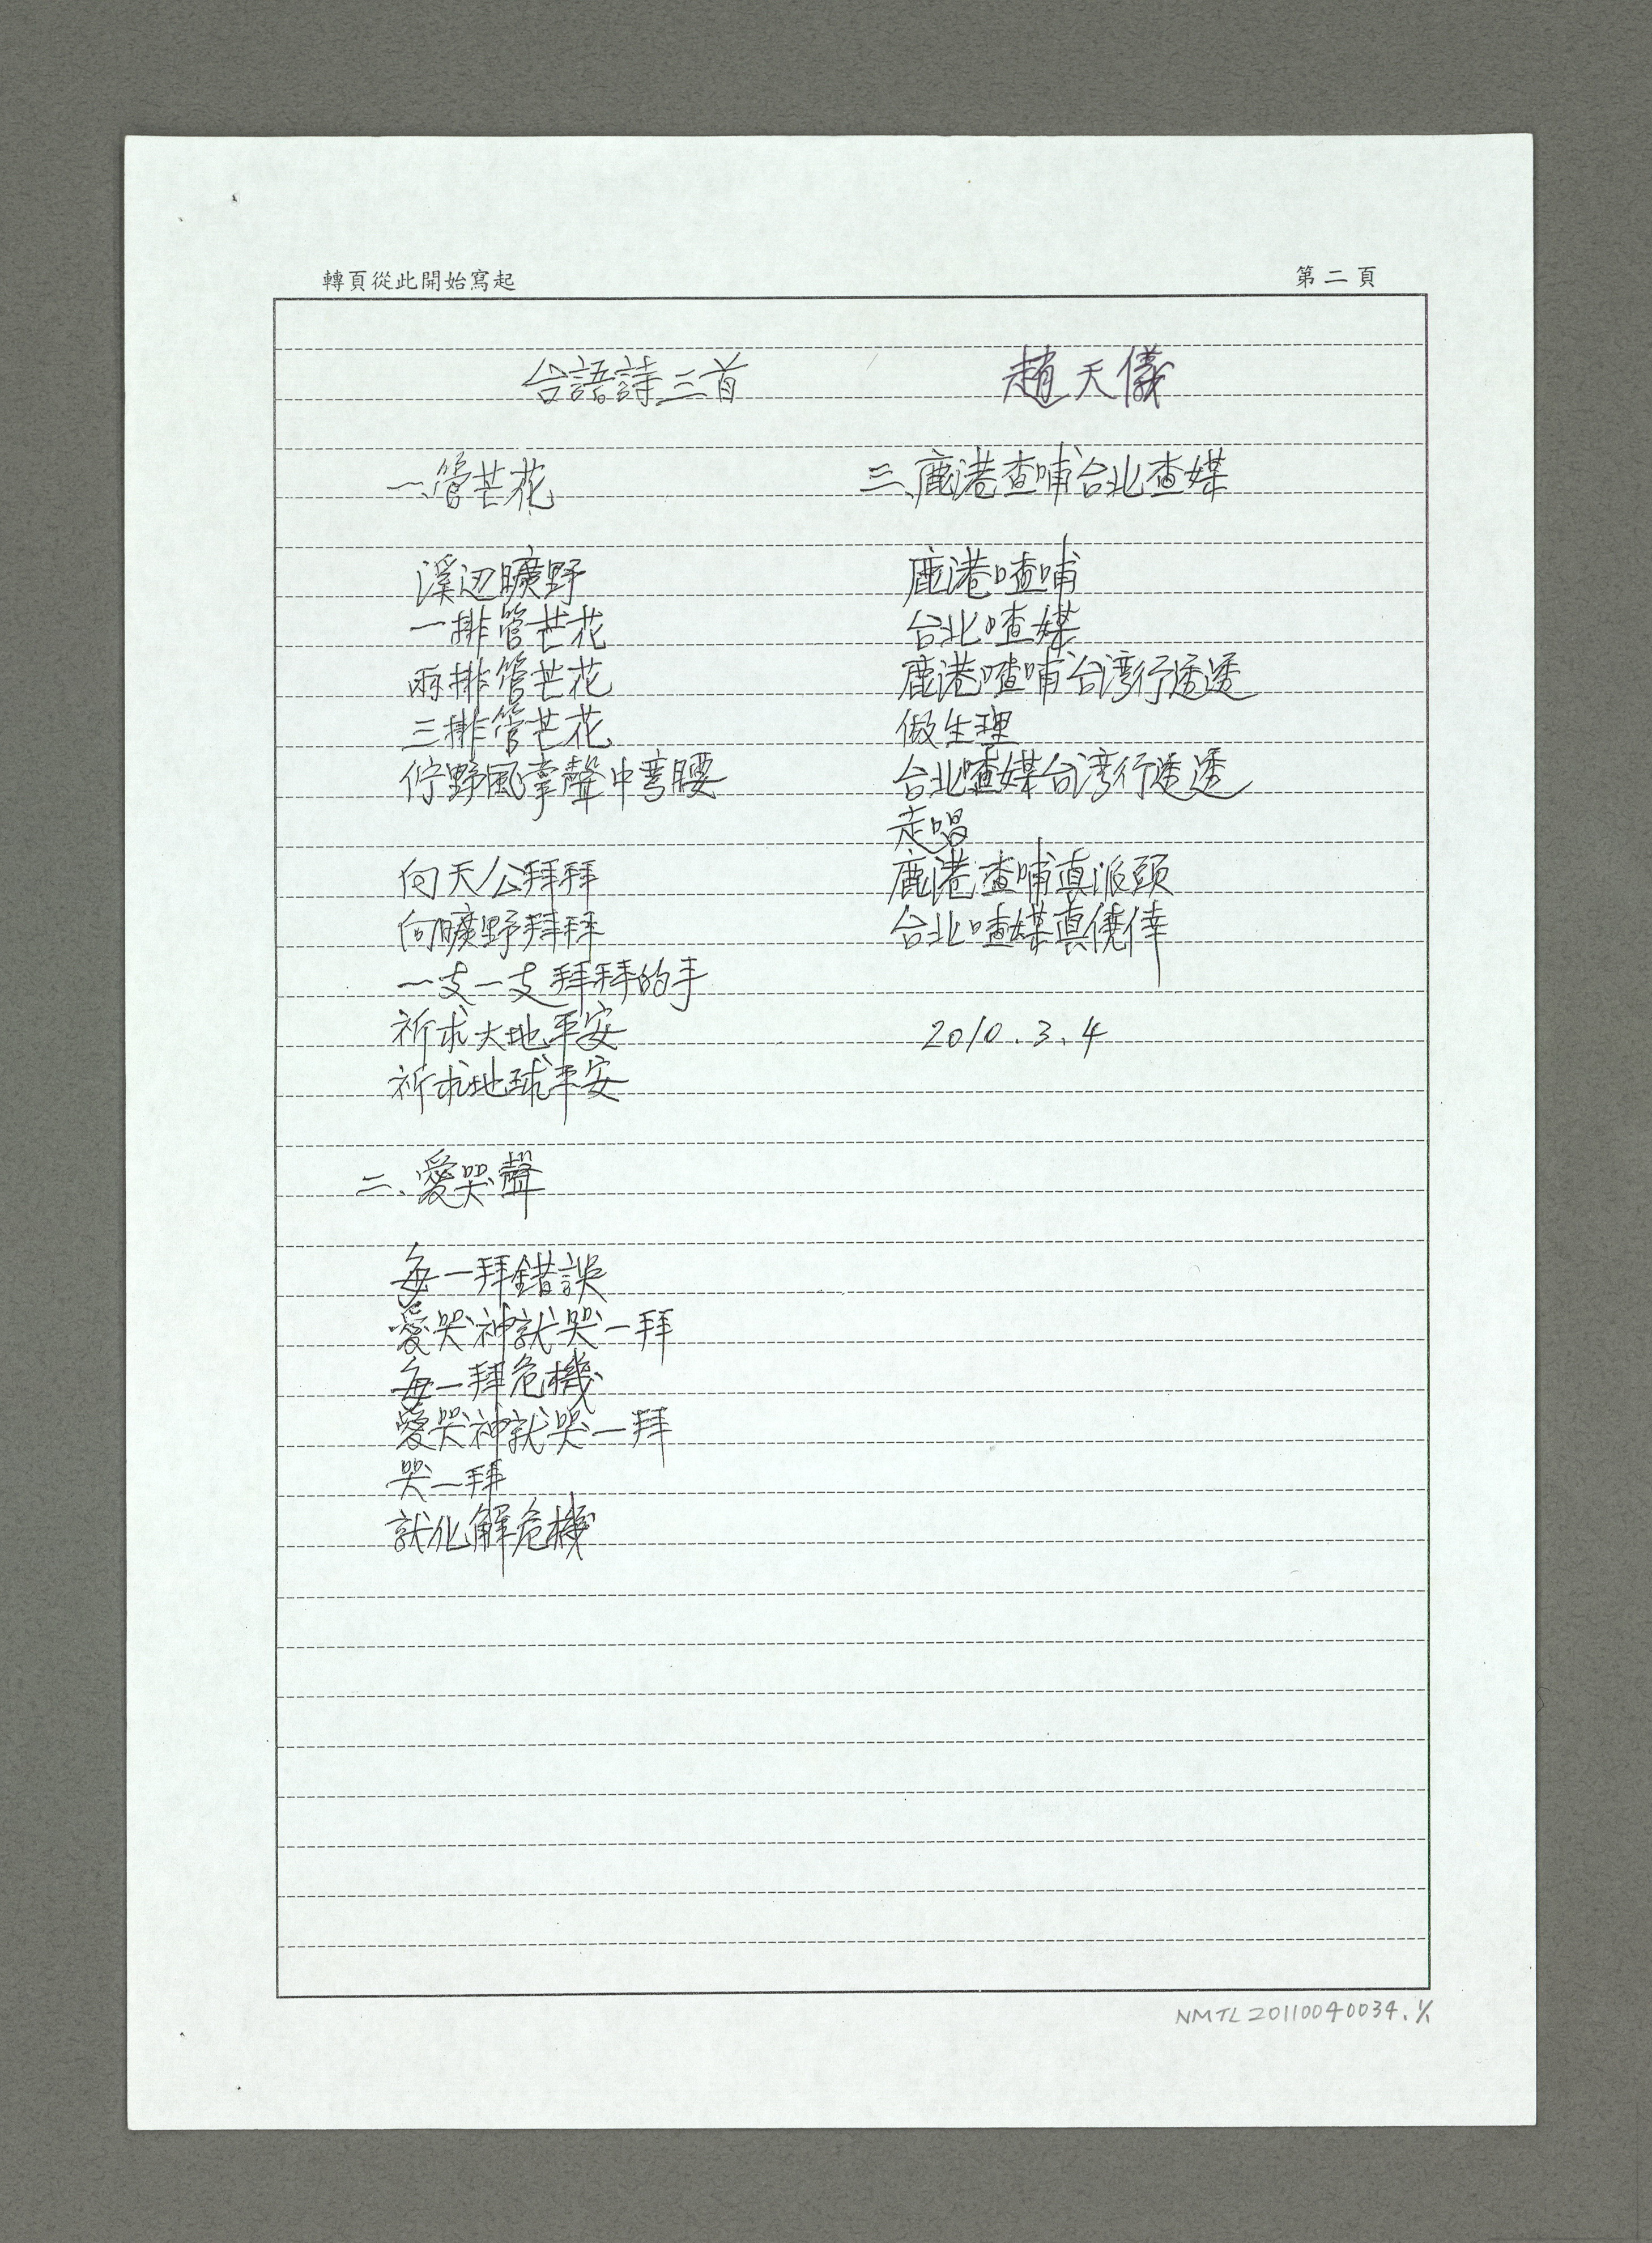 轉頁從此開始寫起
第二頁
台語詩三首
趙天儀
一、管芒花
溪辺曠野
一排管芒花
兩排管芒花
三排管芒花
佇野風掌聲中弯腰
向天公拜拜
向曠野拜拜
一支一支拜拜的手
祈求大地平安
祈求地球平安
二、愛哭聲
每一拜錯誤
愛哭神就哭一拜
每一拜危機
愛哭神就哭一拜
哭一拜
就化解危機
三、鹿港查哺台北查媒
鹿港喳哺
台北喳媒
鹿港喳哺台湾行透透
做生理
台北喳媒台湾行透透
走唱
鹿港查哺真派頭
台北喳媒真僥倖
2010.3.4
NMTL20110040034.1/1